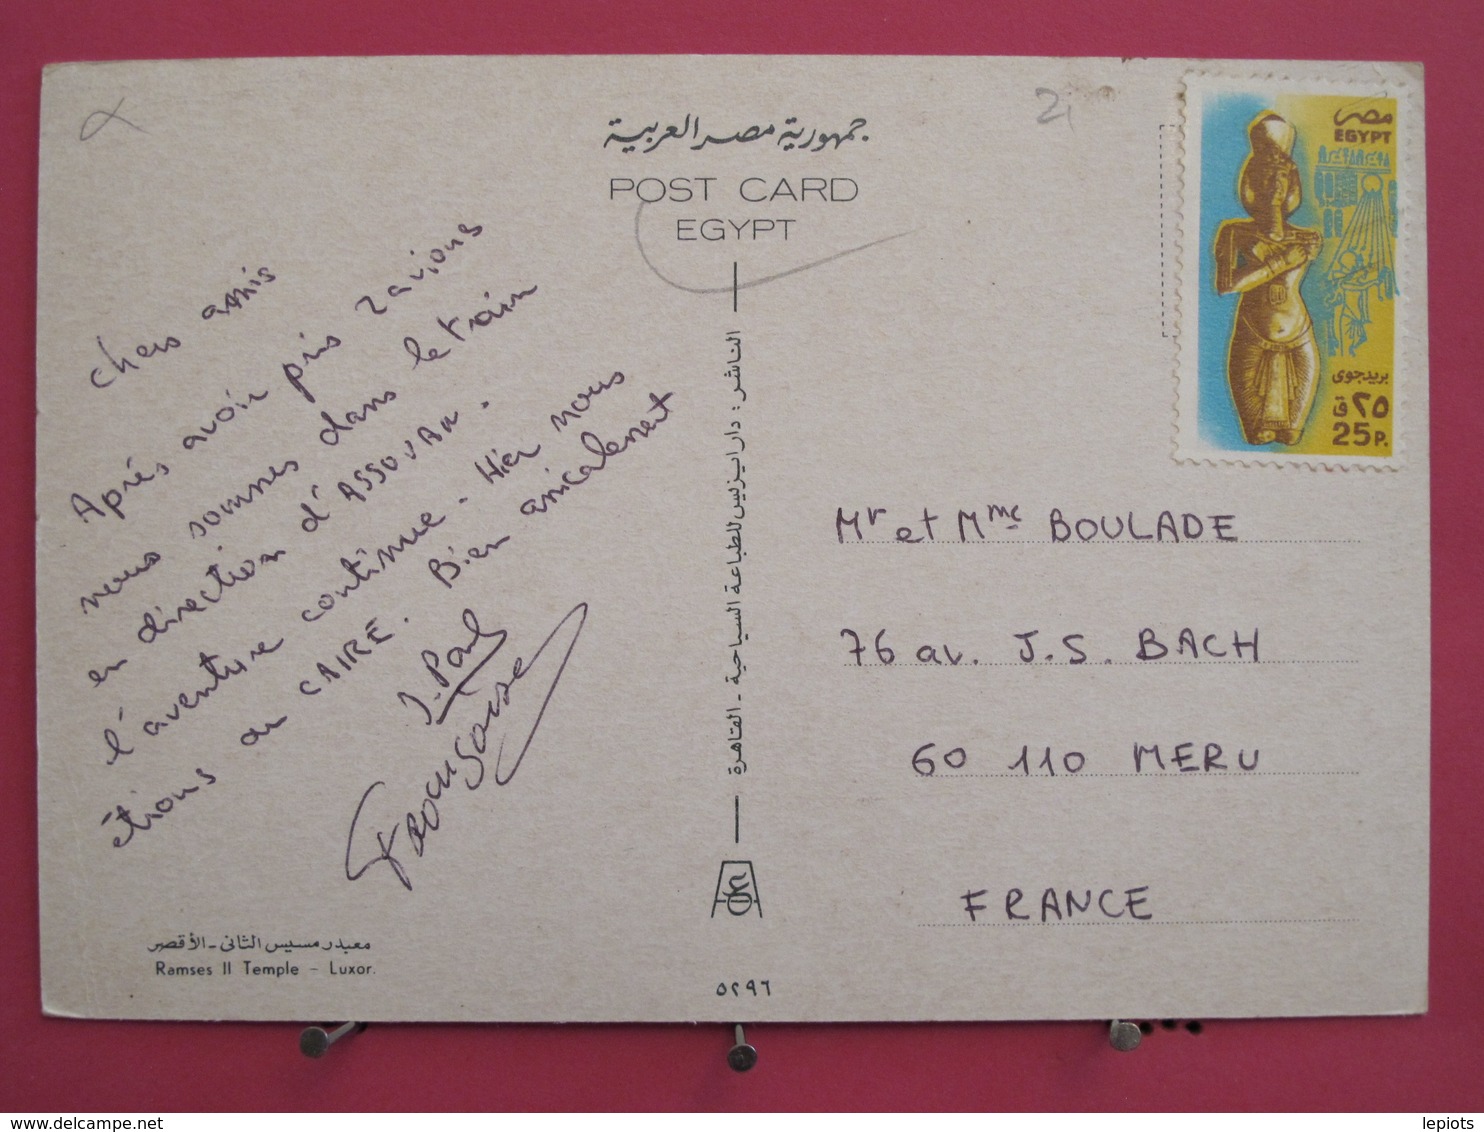 جمهورية مصر العربية
POST CARD
EGYPT
مصر
EGYPT
بريد جوى
٢٥ ق
25P.
chers amis
Après avoir pris 2 avions
nous sommes dans le train
en direction d'ASSOUAN.
l'aventure continue. Hier nous
étions au CAIRE. Bien amicalement
J. Paul
Françoise
الناشر : دار ايزيس للطباعة السياحية - القاهرة
Mr et Mme BOULADE
76 av. J.S. BACH
60 110 MERU
FRANCE
معبد رمسيس الثانى - الأقصر
Ramses II Temple - Luxor.
٥٢٩٦
lepiots